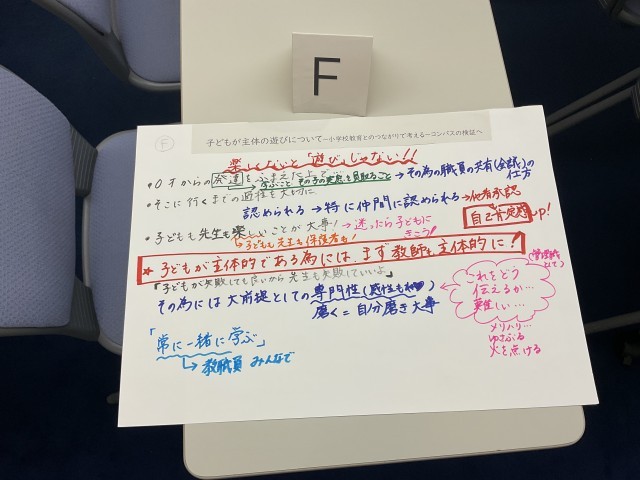 F
F
子どもが主体の遊びについて―小学校教育とのつながりで考える―コンパスの検証へ
楽しくないと「遊び」じゃない!!
・0才からの発達をふまえた上で…
→その為の職員の共有(会議)の仕方
・そこに行くまでの過程を大切に
認められる→特に仲間に認められる→他者承認
自己肯定感up!
・子どもも先生も楽しいことが大事!→迷ったら子どもにきこう!
→子どもも先生も保護者も!
★子どもが主体的である為には、まず教師も主体的に!
「子どもが失敗しても良いから先生も失敗していいよ」
その為には大前提としての専門性(感性も)
磨く=自分磨き大事
これをどう伝えるか…難しい…
メリハリ…
ゆさぶる
火を点ける
「常に一緒に学ぶ」
→教職員 みんなで